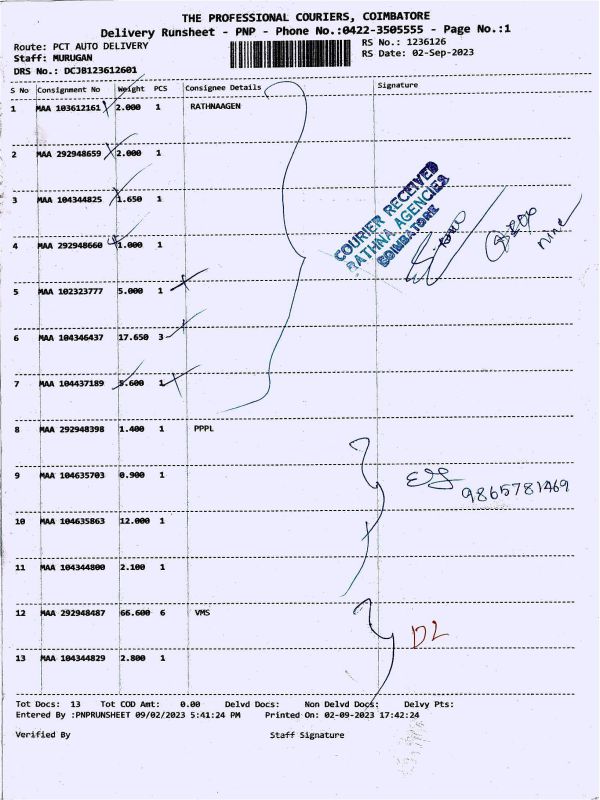 THE PROFESSIONAL COURIERS, COIMBATORE
Delivery Runsheet - PNP - Phone No.:0422-3505555 - Page No.:1
Route: PCT AUTO DELIVERY
RS No.: 1236126
Staff: MURUGAN
RS Date: 02-Sep-2023
DRS No.: DCJB123612601
S No Consignment No Weight PCS Consignee Details Signature
1 MAA 103612161 2.000 1 RATHNAAGEN
2 MAA 292948659 2.000 1
3 MAA 104344825 1.650 1
4 MAA 292948660 1.000 1
COURIER RECEIVED
RATHNA AGENCIES
COIMBATORE
nine
5 MAA 102323777 5.000 1
6 MAA 104346437 17.650 3
7 MAA 104437189 5.600 1
8 MAA 292948398 1.400 1 PPPL
9 MAA 104635703 0.900 1
9865781469
10 MAA 104635863 12.000 1
11 MAA 104344800 2.100 1
12 MAA 292948487 66.600 6 VMS
DL
13 MAA 104344829 2.800 1
Tot Docs: 13 Tot COD Amt: 0.00 Delvd Docs: Non Delvd Docs: Delvy Pts:
Entered By :PNPRUNSHEET 09/02/2023 5:41:24 PM Printed On: 02-09-2023 17:42:24
Verified By Staff Signature